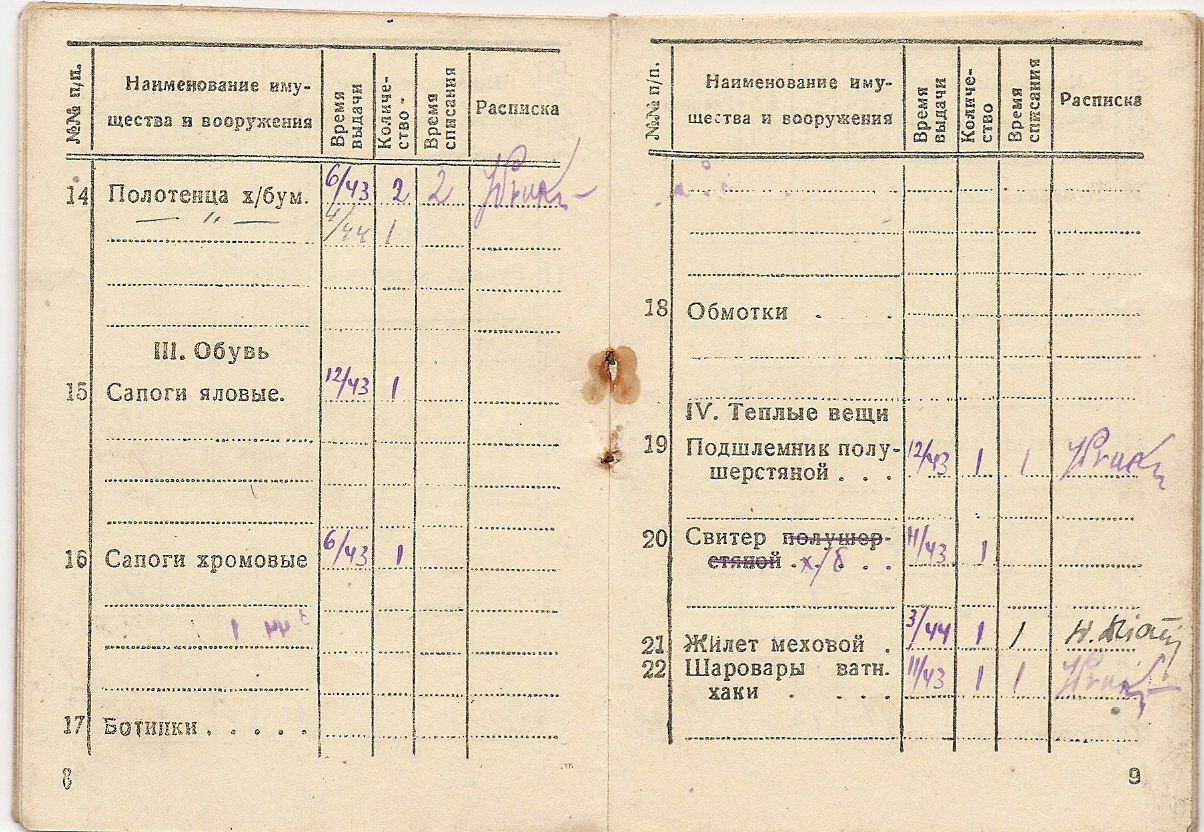 №№ п/п.
Наименование иму-
щества и вооружения
Время выдачи
Количе-
ство -
Время списания
Расписка
14 Полотенца х/бум. 6/43 2 2
— „ — 4/44 1
III. Обувь
15 Сапоги яловые. 12/43 1
16 Сапоги хромовые 6/43 1
17 Ботинки . . . . .
8
№№ п/п.
Наименование иму-
щества и вооружения
Время выдачи
Количе-
ство
Время списания
Расписка
18 Обмотки . .
IV. Теплые вещи
19 Подшлемник полу-
шерстяной . . . 12/43 1 1
20 Свитер полушер-
стяной . х/б . . 11/43 1
21 Жилет меховой . 3/44 1 1
22 Шаровары ватн.
хаки . . . . 11/43 1 1
9